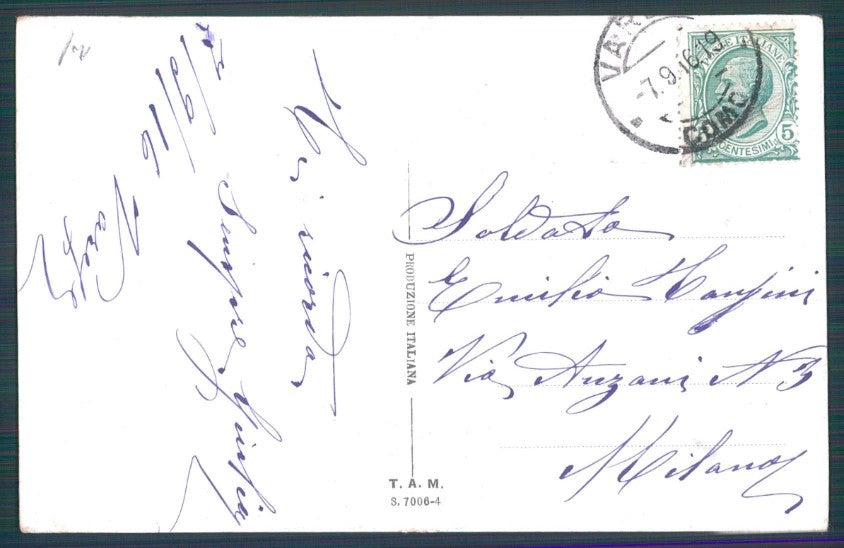 7/9/16 Varese
Vi ricorda
Sempre,
VAR
-7.9.16.19
COMO
POSTE ITALIANE
CENTESIMI 5
Soldato
Emilio
Via Anzani N 3
Milano
PRODUZIONE ITALIANA
T. A. M.
S. 7006-4